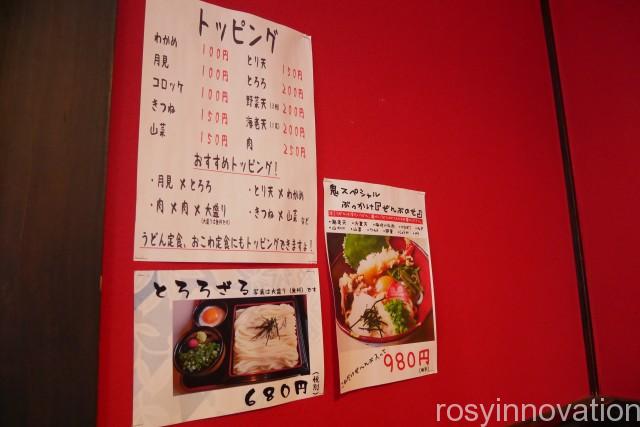 トッピング
わかめ 100円
月見 100円
コロッケ 100円
きつね 150円
山菜 150円
とり天 150円
とろろ 200円
野菜天 200円
海老天 200円
肉 250円
おすすめトッピング!
・月見×とろろ
・とり天×わかめ
・肉×肉×大盛り
・きつね×山菜 など
うどん定食、おこわ定食にもトッピングできますよ!
とろろざる 写真は大盛り(無料)です
680円(税別)
鬼スペシャル
ぶっかけ『ぜんぶのせ』
980円
(税別)
rosyinnovation